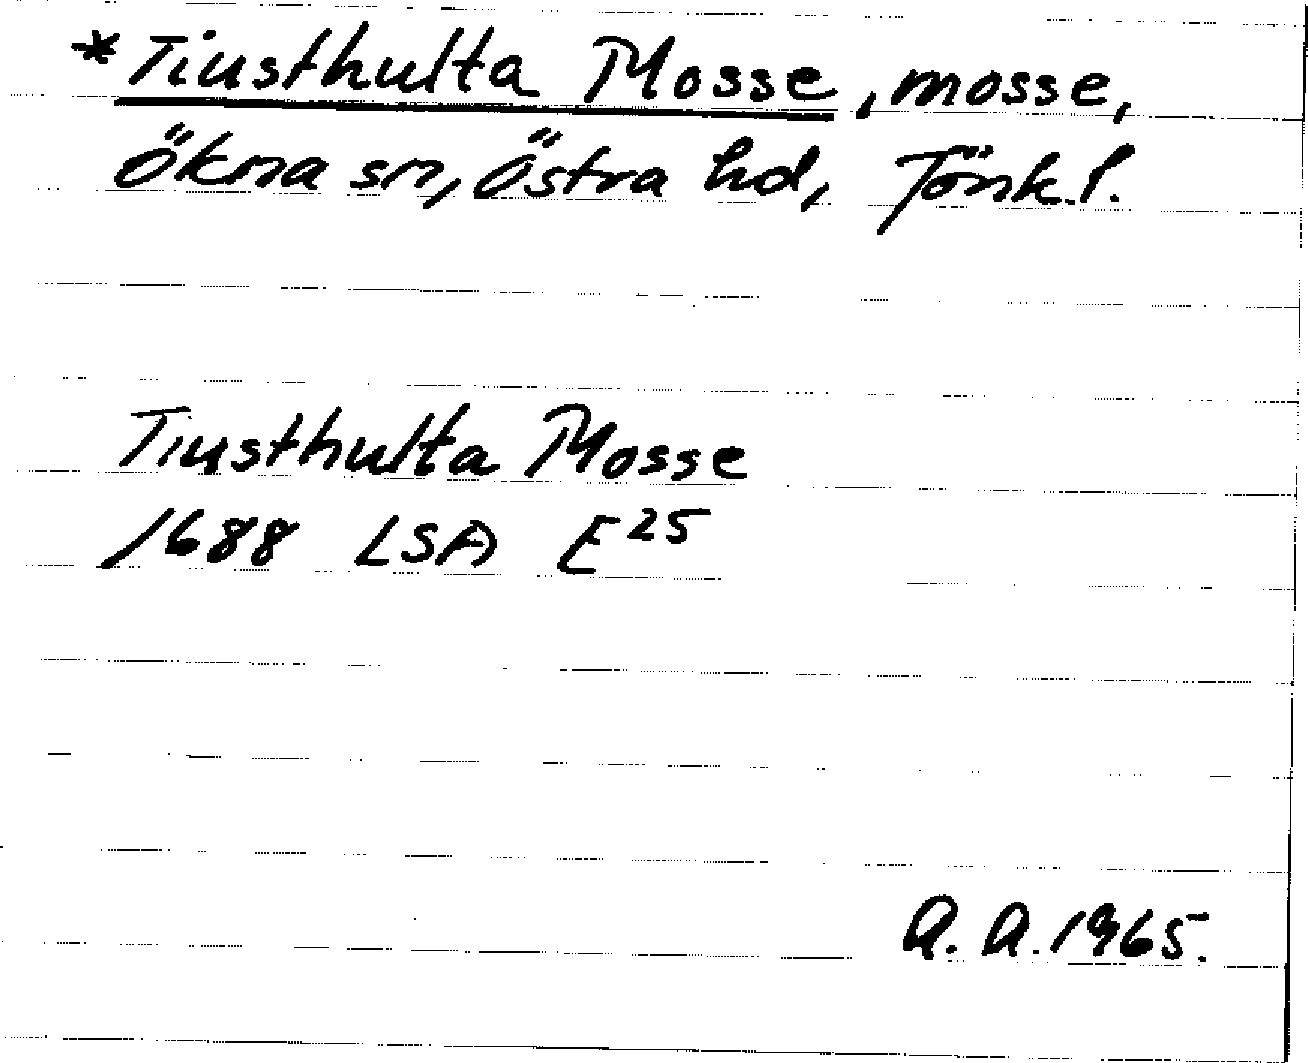 *Tiusthulta Mosse, mosse,
Ökna sn, Östra hd, Jönk.l.
Tiusthulta Mosse
1688 LSA E25
A. A. 1965.